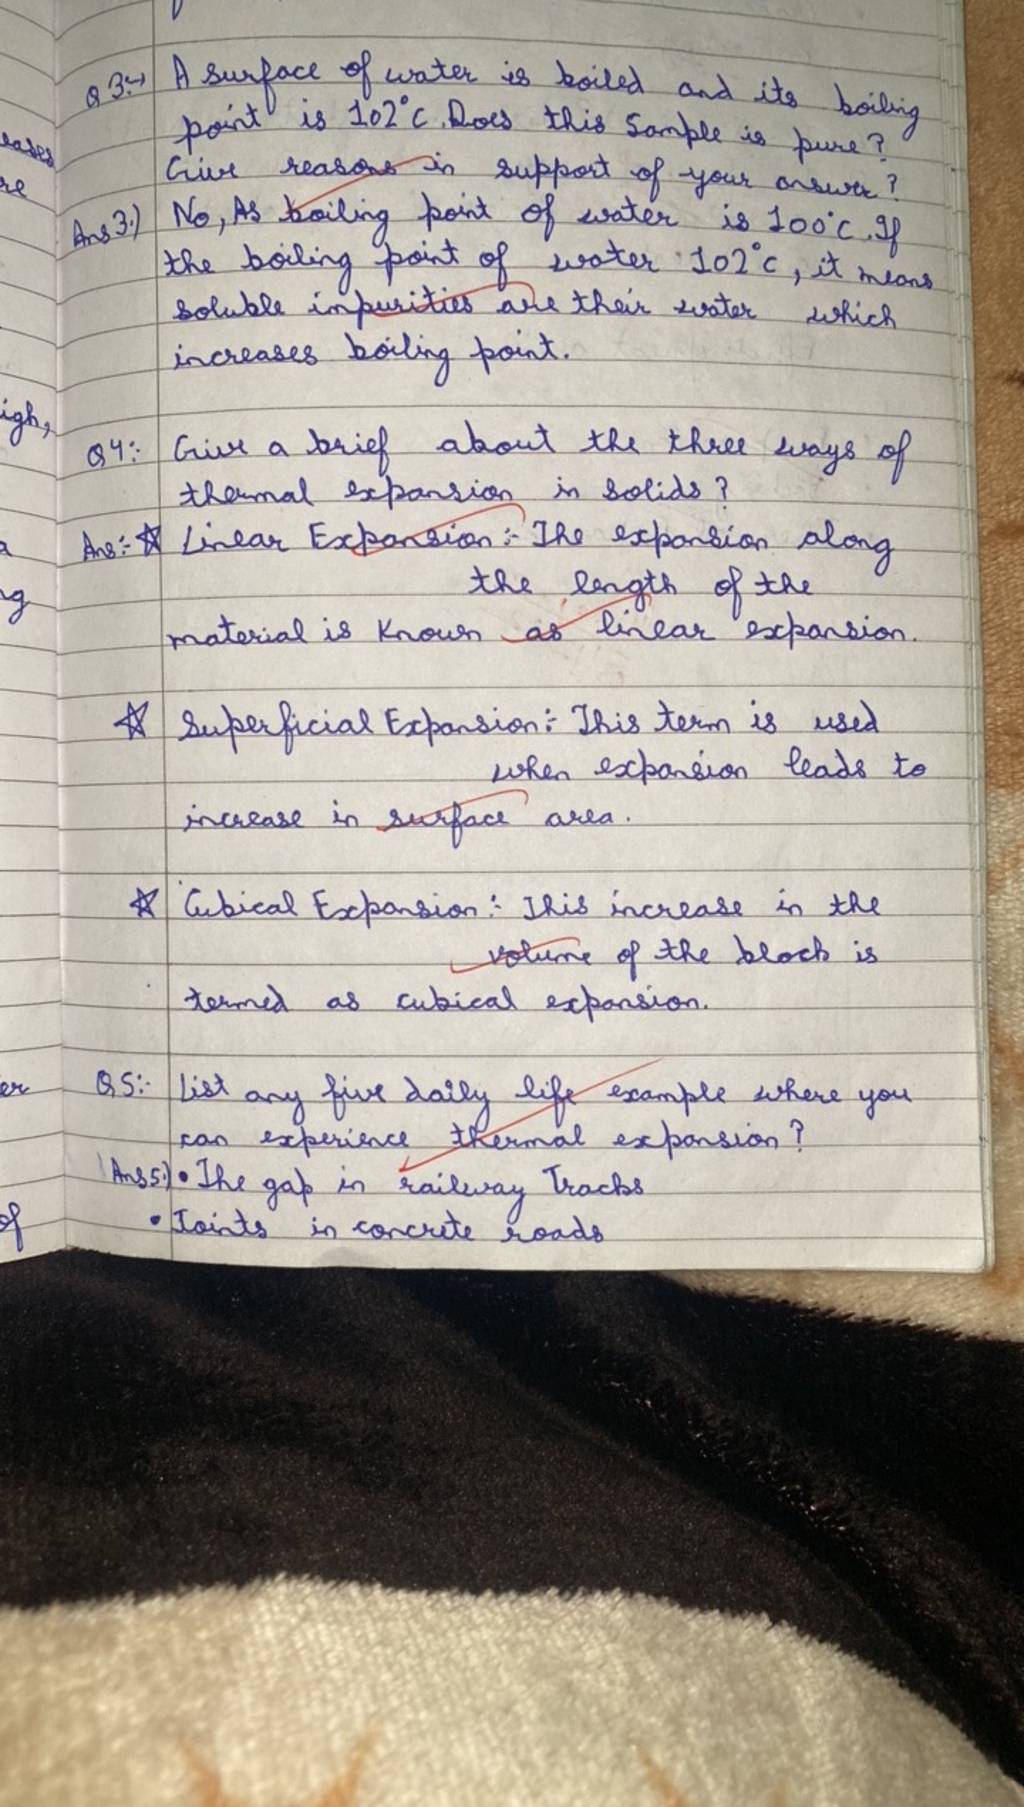 Q3:→ A surface of water is boiled and its boiling
point is 102°C. Does this Sample is pure?
Give reasons in support of your answer?
Ans3.) No, As boiling point of water is 100°C. If
the boiling point of water 102°C, it means
soluble impurities are their water which
increases boiling point.
Q4:- Give a brief about the three ways of
thermal expansion in solids?
Ans:- ☆ Linear Expansion:- The expansion along
the length of the
material is known as linear expansion.
☆ Superficial Expansion:- This term is used
when expansion leads to
increase in surface area.
☆ Cubical Expansion:- This increase in the
volume of the block is
termed as cubical expansion.
Q5:- List any five daily life example where you
can experience thermal expansion?
Ans5.) • The gap in railway Tracks
• Joints in concrete roads